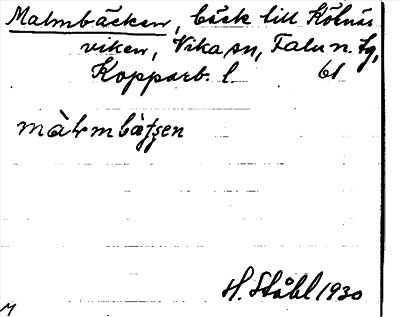 Malmbäcken, bäck till Kölnäs
viken, Vika sn, Falu n. tg,
Kopparb. l. 61
màlmbàtʃen
H. Ståhl 1930
M